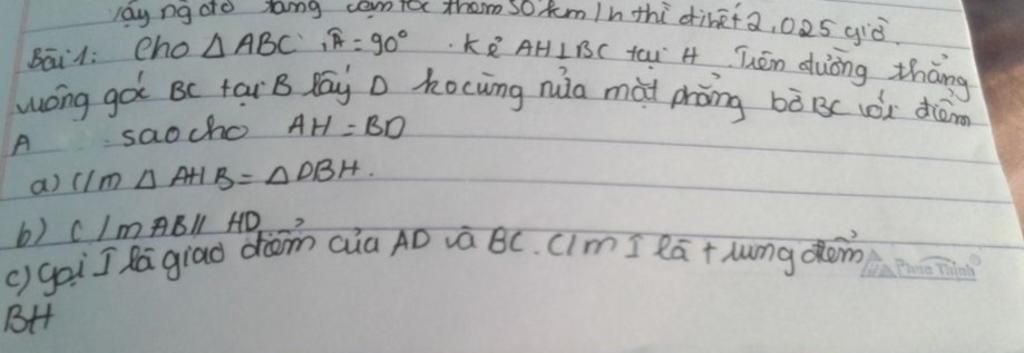 vậy ng ôtô tăng vận tốc thêm 50 km/h thì đi hết 2,025 giờ.
Bài 1: Cho △ABC, Â = 90°. Kẻ AH⊥BC tại H. Trên đường thẳng
vuông góc BC tại B lấy D ko cùng nửa mặt phẳng bờ BC với điểm
A sao cho AH = BD
a) C/m △AHB = △DBH.
b) C/m AB // HD
c) Gọi I là giao điểm của AD và BC. C/m I là trung điểm
BH